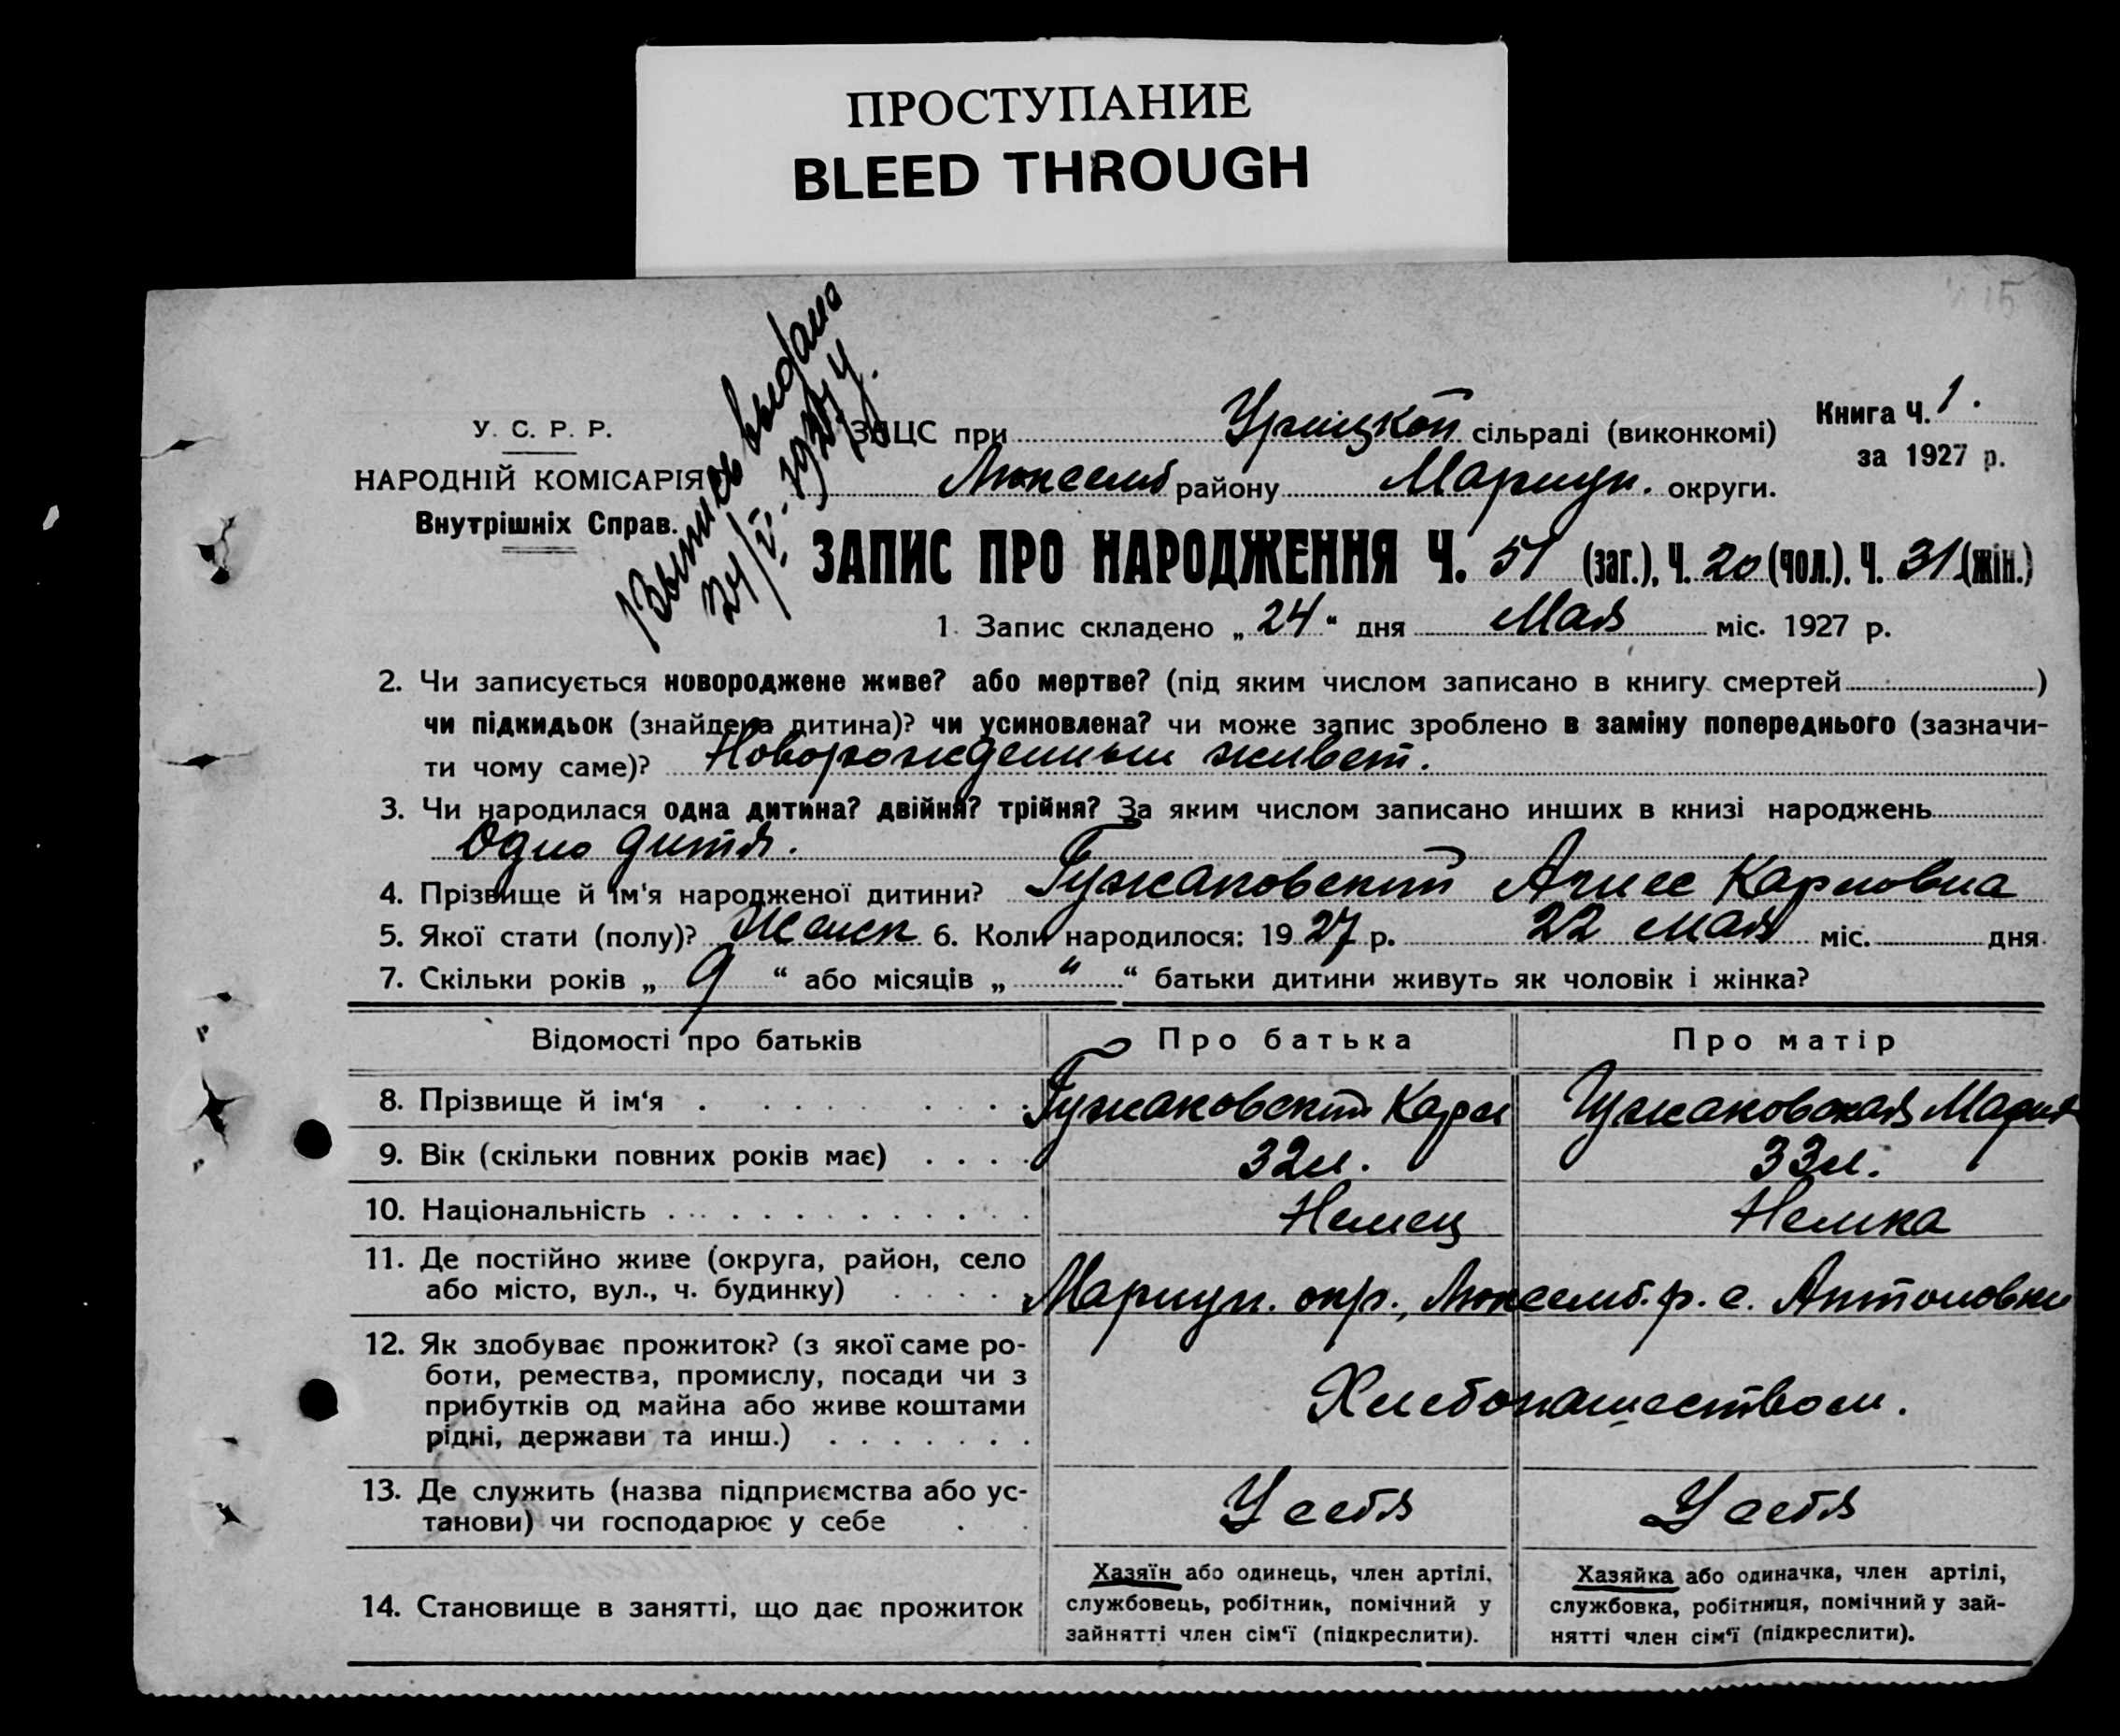 ПРОСТУПАНИЕ
BLEED THROUGH
Выпись выдана
У. С. Р. Р.
НАРОДНІЙ КОМІСАРІЯ
Внутрішніх Справ.
ЗАЦС при Урицкой сільраді (виконкомі)
Люксемб району Мариуп. округи.
Книга Ч. 1.
за 1927 р.
ЗАПИС ПРО НАРОДЖЕННЯ Ч. 51 (заг.), Ч. 20 (чол.). Ч. 31 (жін.)
1. Запис складено „ 24 “ дня Мая міс. 1927 р.
2. Чи записується новороджене живе? або мертве? (під яким числом записано в книгу смертей )
чи підкидьок (знайдена дитина)? чи усиновлена? чи може запис зроблено в заміну попереднього (зазначи-
ти чому саме)? Новорожденный живет.
3. Чи народилася одна дитина? двійня? трійня? За яким числом записано инших в книзі народжень
Одно дитя.
4. Прізвище й ім'я народженої дитини? Гужаковский Агнес Карловна
5. Якої стати (полу)? Женск 6. Коли народилося: 1927 р. 22 мая міс. дня
7. Скільки років „ 9 “ або місяців „ " “ батьки дитини живуть як чоловік і жінка?
Відомості про батьків Про батька Про матір
8. Прізвище й ім'я Гужаковский Карл Гужаковская Мария
9. Вік (скільки повних років має) 32 л. 33 л.
10. Національність Немец Немка
11. Де постійно живе (округа, район, село
або місто, вул., ч. будинку) Мариуп. окр., Люксемб. р. с. Антоновки
12. Як здобуває прожиток? (з якої саме ро-
боти, ремества, промислу, посади чи з
прибутків од майна або живе коштами
рідні, держави та инш.) Хлебопашеством.
13. Де служить (назва підприємства або ус-
танови) чи господарює у себе У себя У себя
14. Становище в занятті, що дає прожиток
Хазяїн або одинець, член артілі,
службовець, робітник, помічний у
зайнятті член сім'ї (підкреслити).
Хазяйка або одиначка, член артілі,
службовка, робітниця, помічний у зай-
нятті член сім'ї (підкреслити).